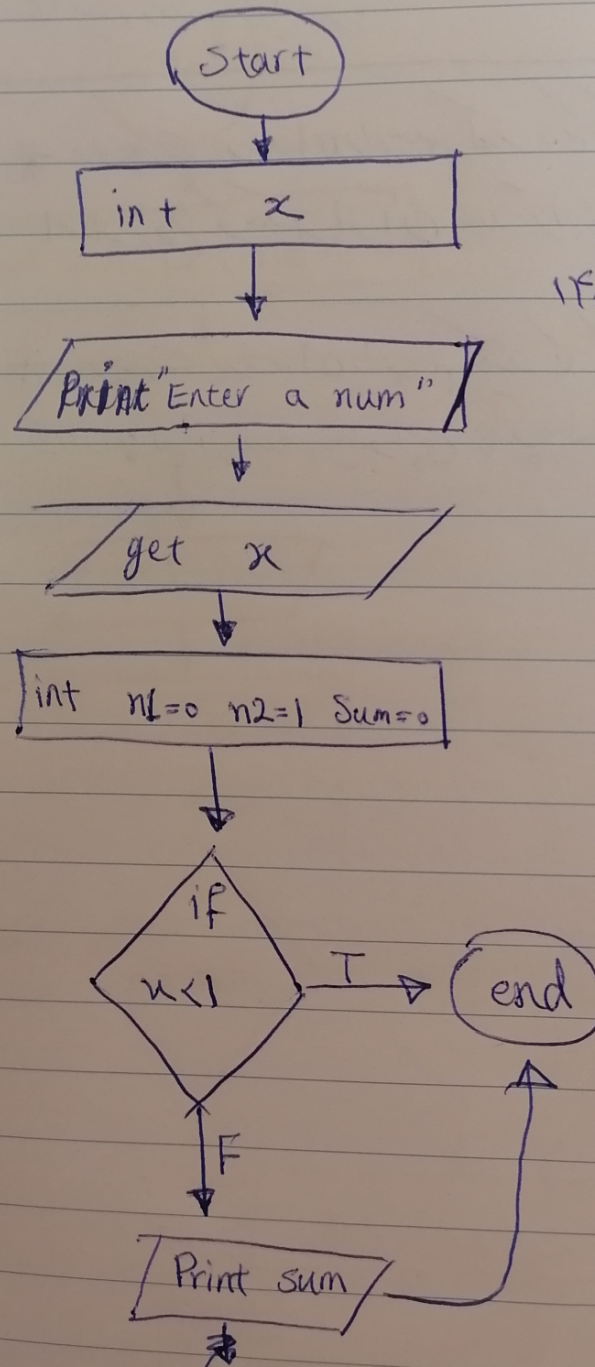 Start
int x
Print "Enter a num"
get x
int n1=0 n2=1 Sum=0
if
x<1
T
end
F
Print sum